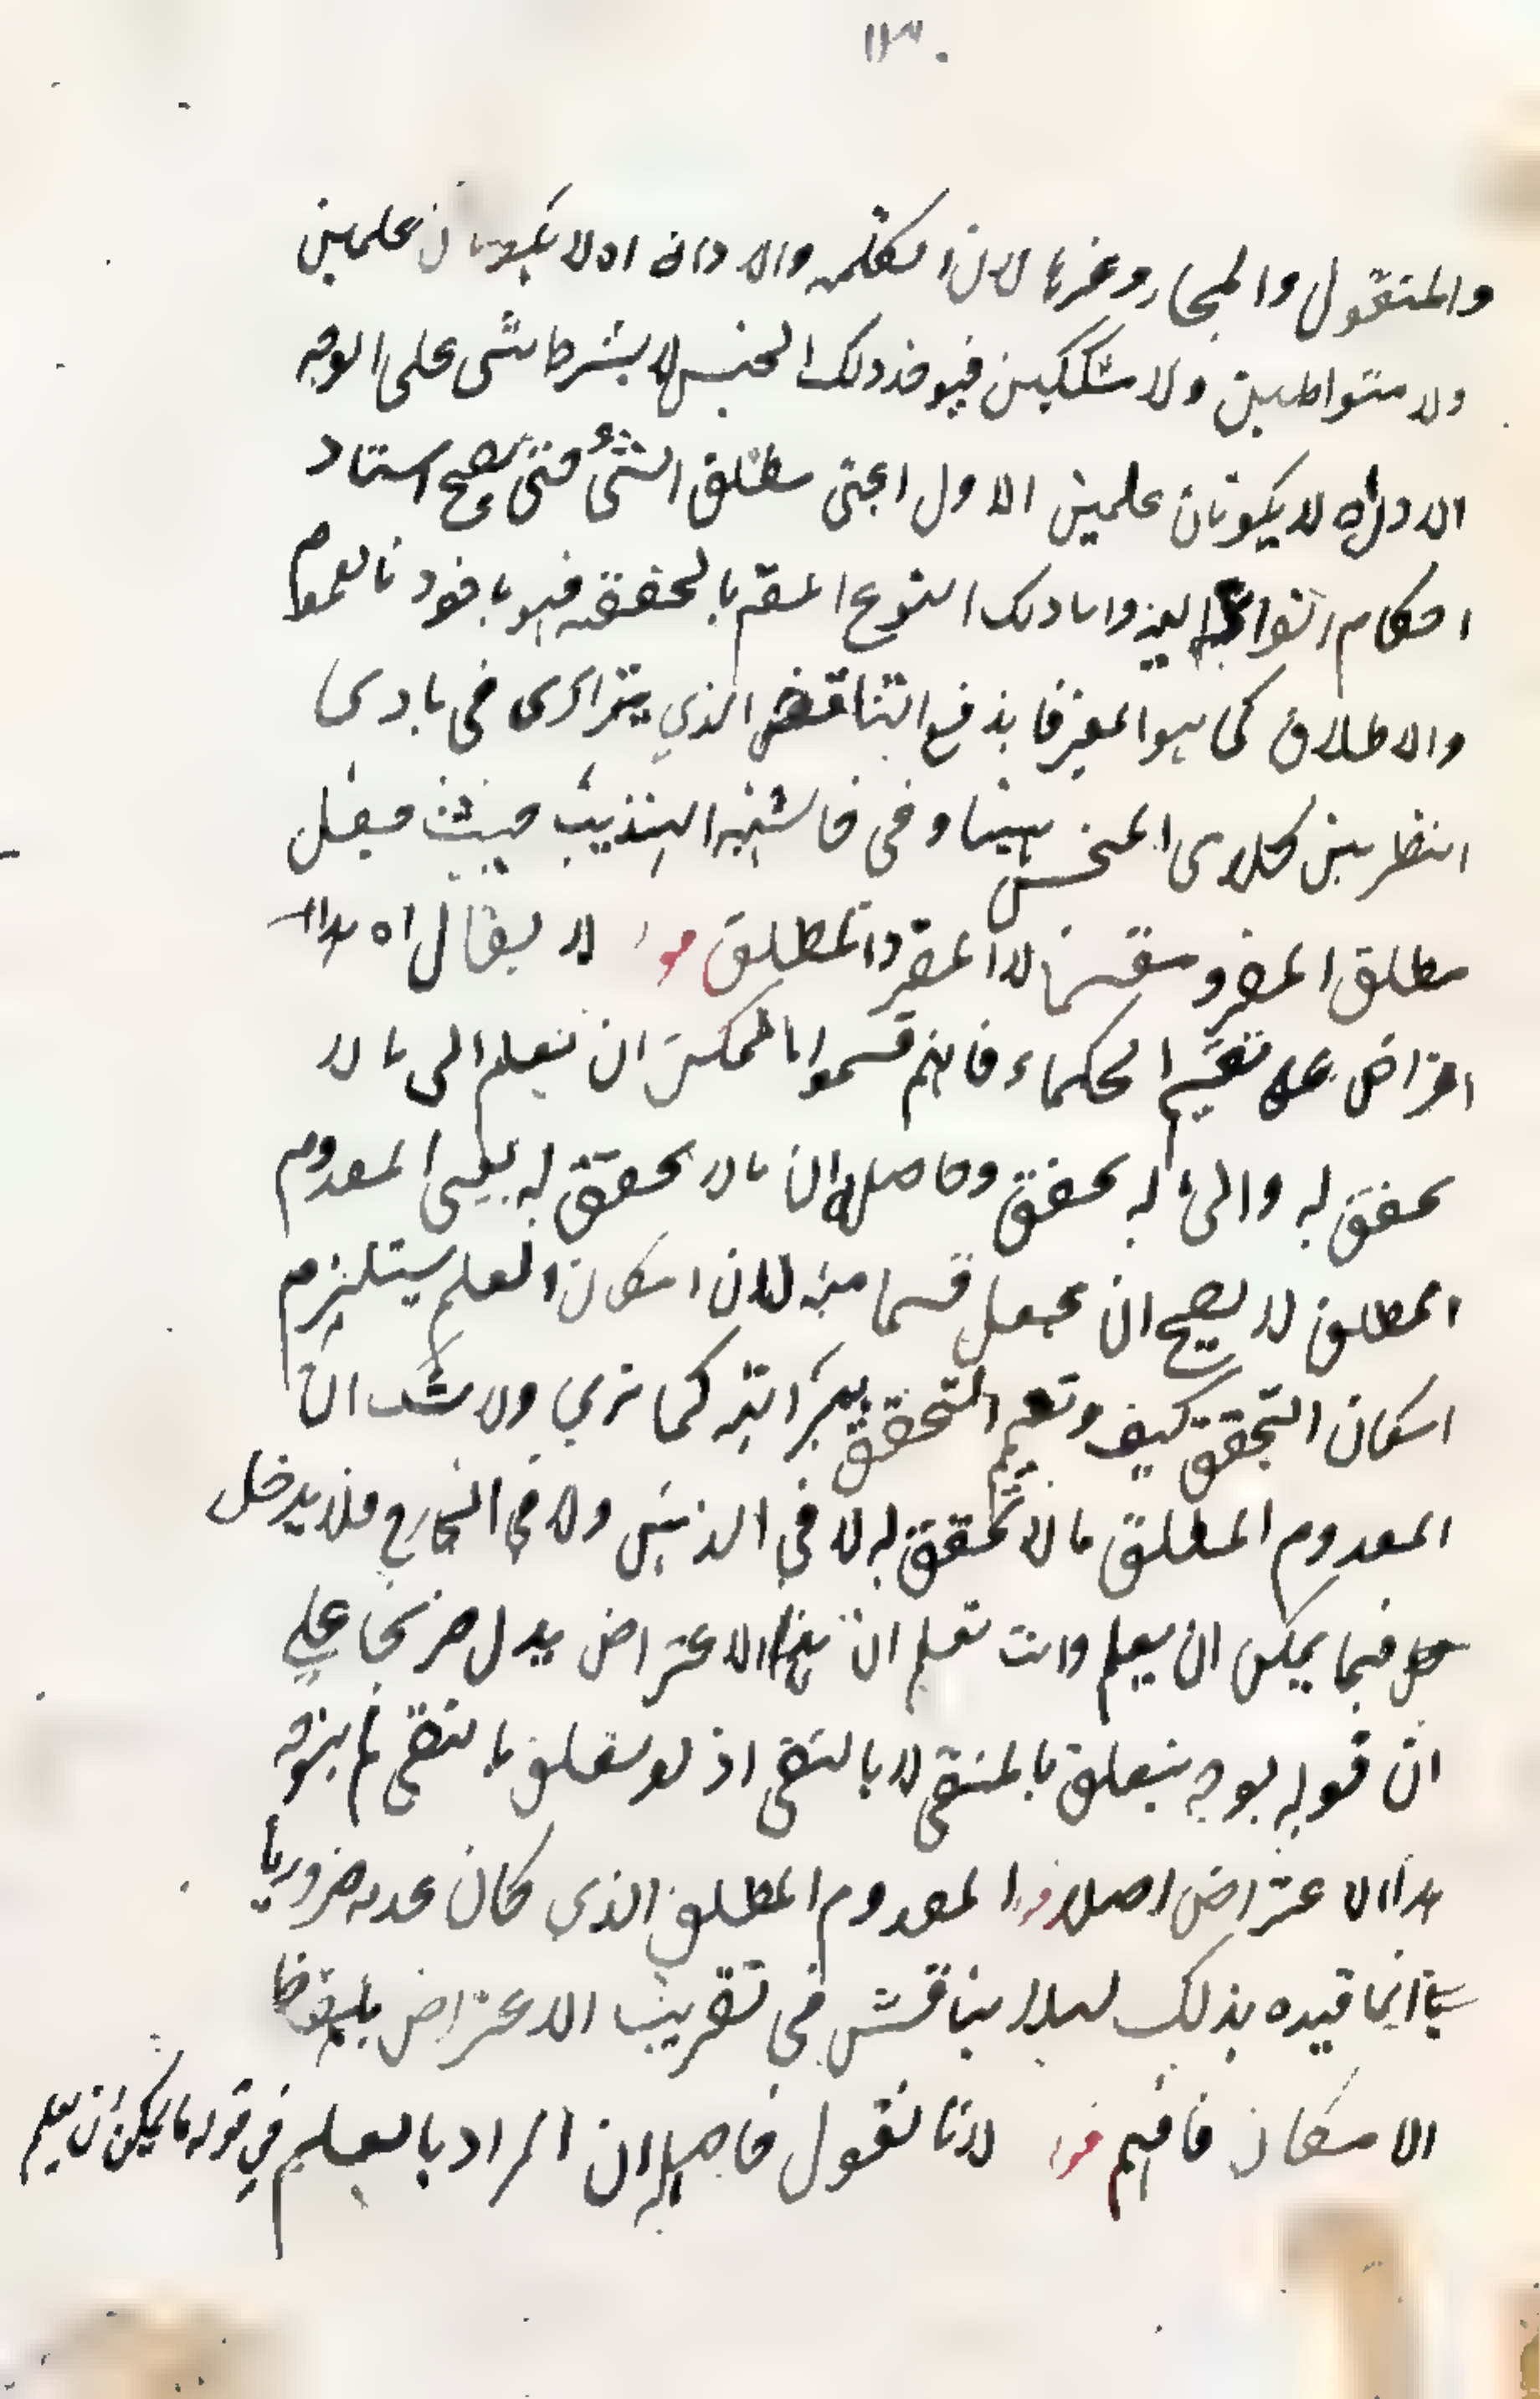 والمنقول والمجاز وغيرها لان الكلمة والاداة لا يكونان علمين
ولا متواطيين ولا مشككين فيوخذ ذلك الجنس لا بشرط شي على الوجه
الاول اه لا يكونان علمين الاول اعنى مطلق الشئ حتى يصح اسناد
احكام افراد اليه واما ذلك النوع المقسم بالحقيقة فهو ماخوذ بالعموم
والاطلاق كما هو المعبر فاندفع التناقض الذي يتراءى في بادى
النظر بين كلامى المحشى ههنا وفي حاشية التهذيب حيث جعل
مطلق المفرد مقسما لا المفرد المطلق قوله لا يقال اه هذا
اعتراض على تقسيم الحكماء فانهم قسموا ما يمكن ان يعلم الى ما لا
تحقق له والى ما له تحقق وحاصله ان ما لا تحقق له يعنى المعدوم
المطلق لا يصح ان يجعل قسما منه لان امكان العلم يستلزم
امكان التحقق كيف وتعميم التحقق بمراتبه كما ترى ولا شك ان
المعدوم المطلق ما لا تحقق له لا في الذهن ولا في الخارج فلا يدخل
فيما يمكن ان يعلم وانت تعلم ان هذا الاعتراض يدل صريحا على
ان قوله بوجه يتعلق بالمنفى لا بالنفى اذ لو تعلق بالنفى لم يتوجه
هذا الاعتراض اصلا قوله المعدوم المطلق الذى كان عدمه ضروريا
انما قيده بذلك لئلا يناقش في تقريب الاعتراض
الامكان فافهم قوله لانا نقول حاصله ان المراد بالعلم في قوله ما يمكن ان يعلم